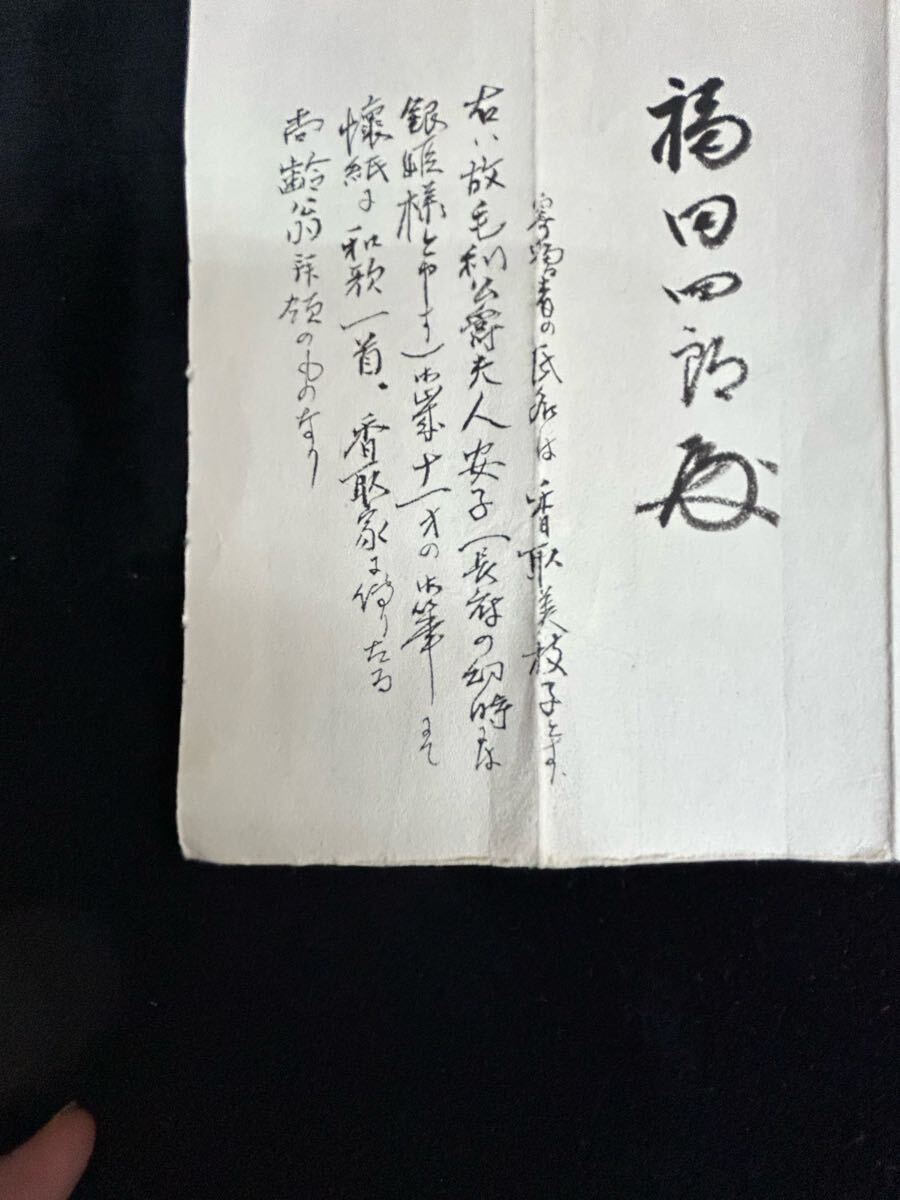 福田四郎殿
寄贈者の氏名は香取美枝子とす、
右ハ故毛利公爵夫人安子(長府の幼時は
銀姫様と申す)御歳十一才の御筆にて
懐紙に和歌一首。香取家に伝りたる
尚齢翁拝領のものなり